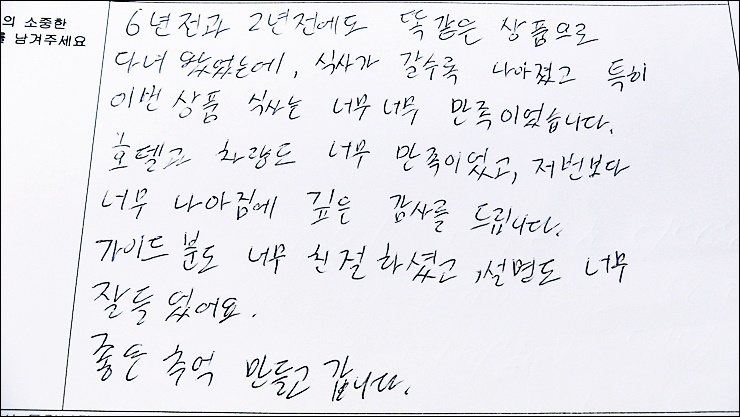 의 소중한
를 남겨주세요
6년전과 2년전에도 똑같은 상품으로
다녀 왔었는에, 식사가 갈수록 나아졌고 특히
이번 상품 식사는 너무너무 만족이었습니다.
호텔과 차량도 너무 만족이었고, 저번보다
너무 나아짐에 깊은 감사를 드립니다.
가이드분도 너무 친절하셨고, 설명도 너무
잘들었어요.
좋은 추억 만들고 갑니다.